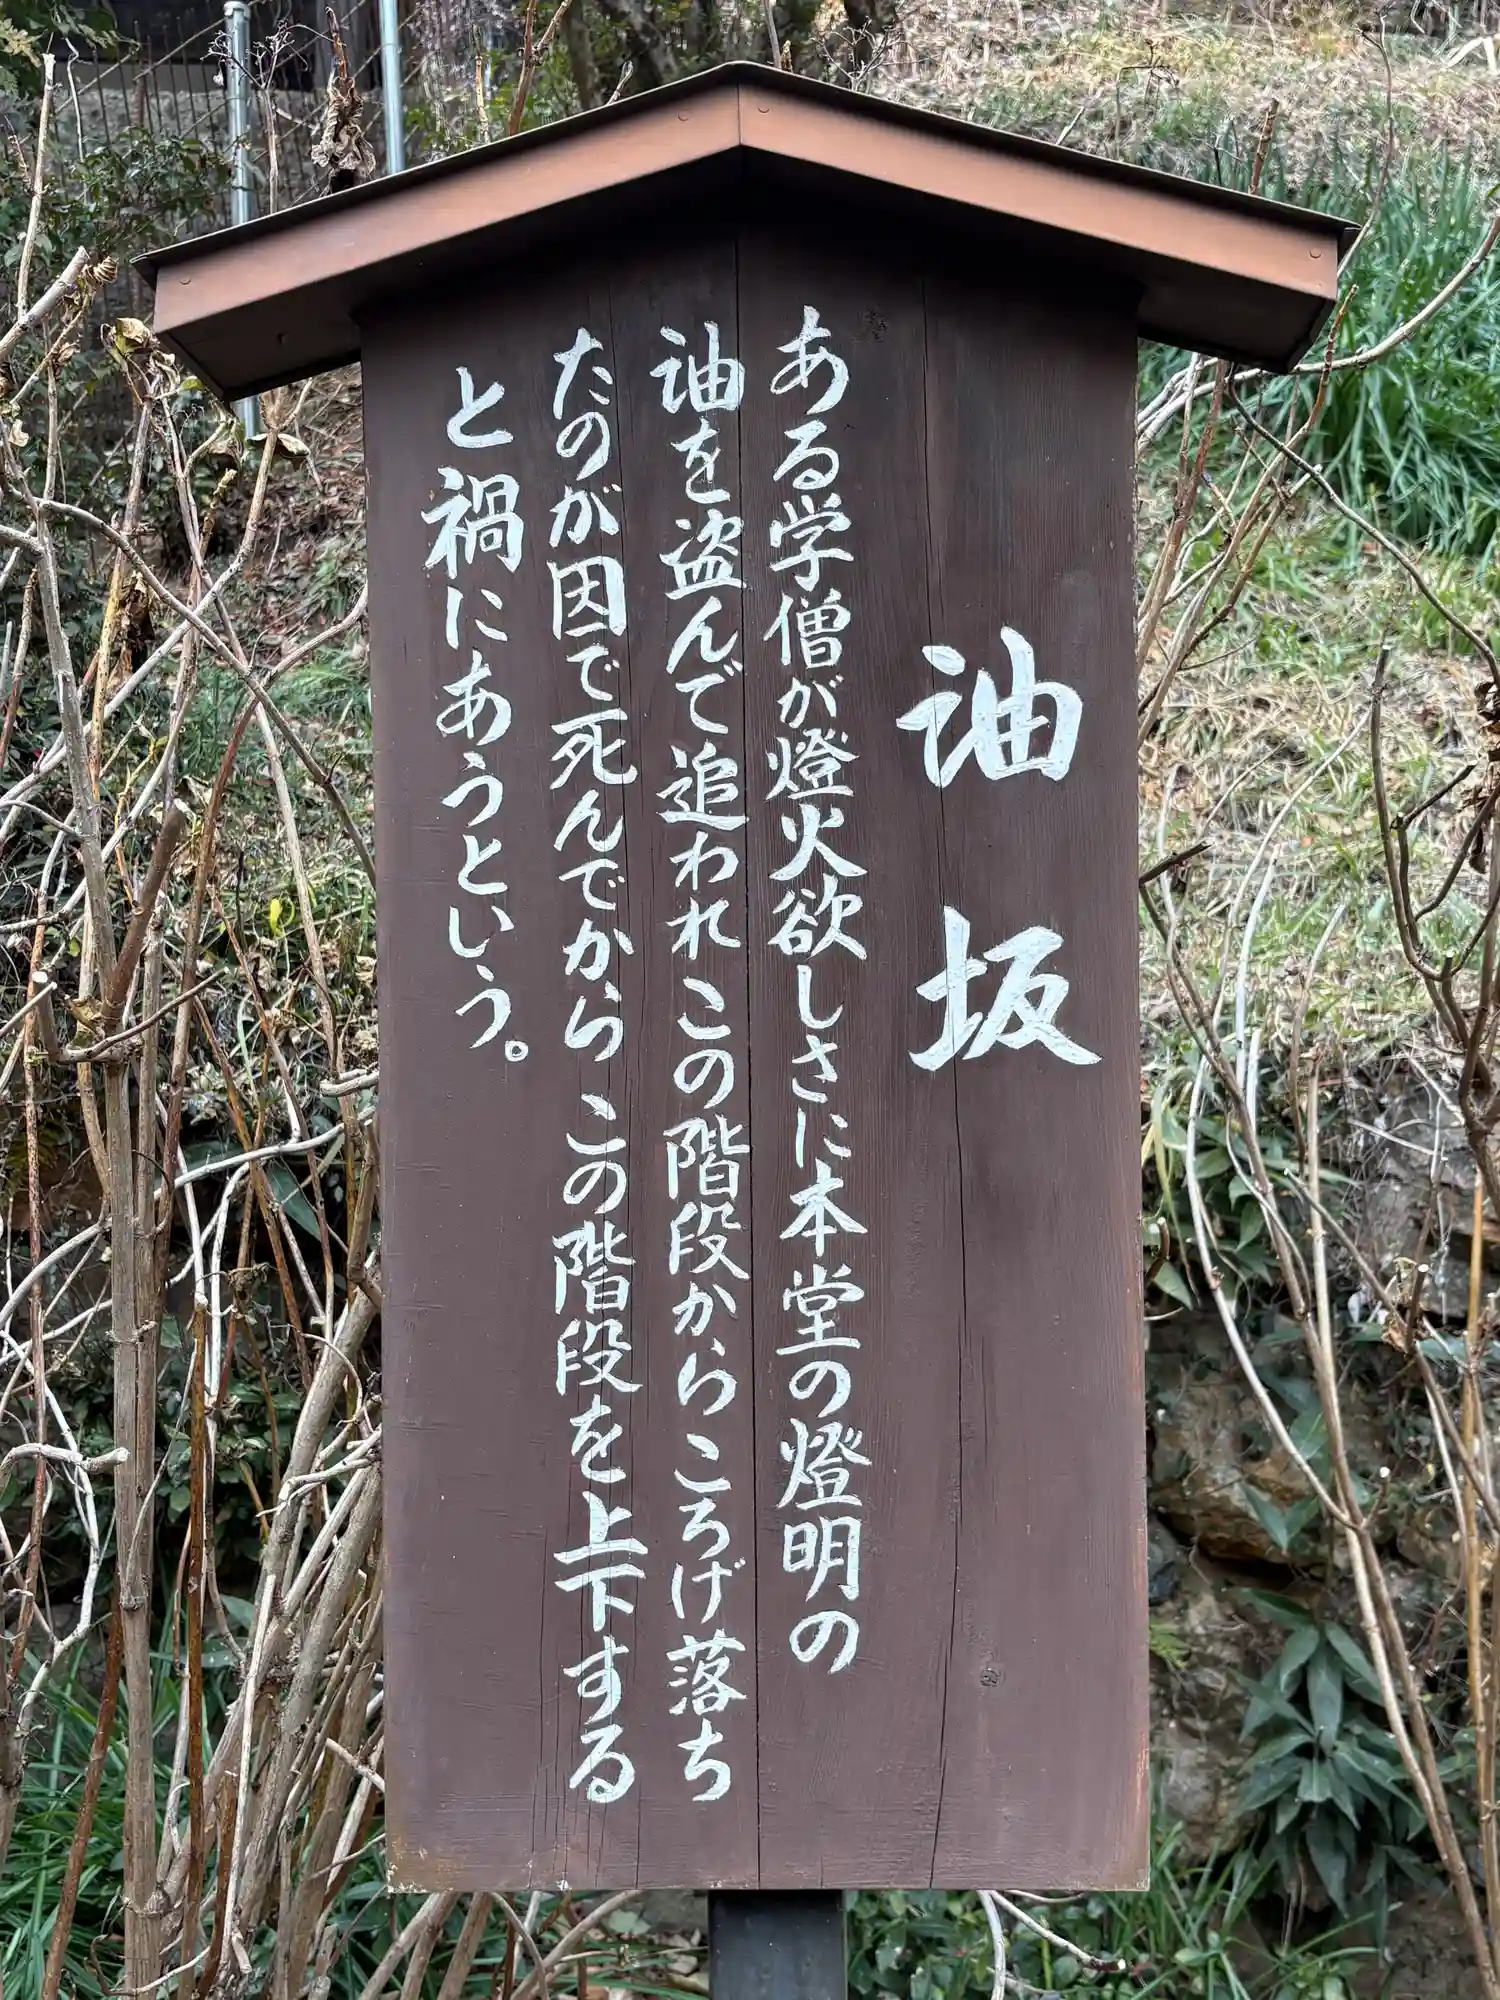 油坂
ある学僧が燈火欲しさに本堂の燈明の
油を盗んで追われこの階段からころげ落ち
たのが因で死んでからこの階段を上下する
と禍にあうという。